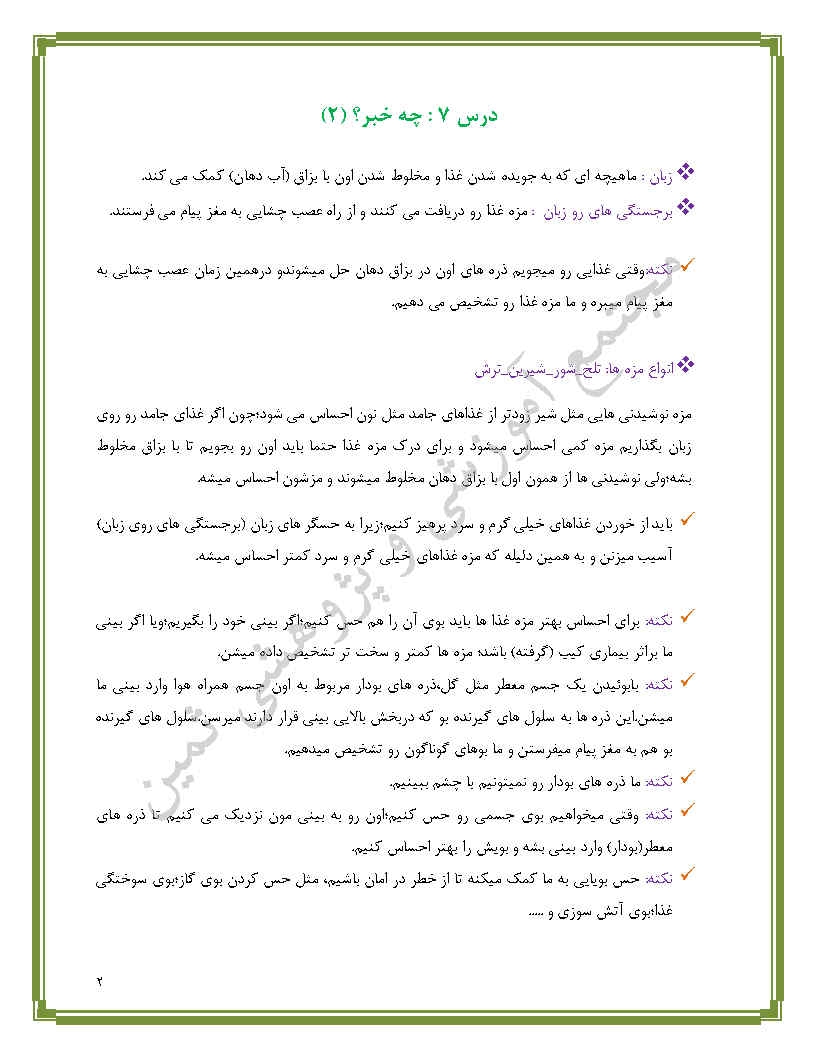 درس ۷ : چه خبر؟ (۲)
زبان : ماهیچه ای که به جویده شدن غذا و مخلوط شدن اون با بزاق (آب دهان) کمک می کند.
برجستگی های رو زبان : مزه غذا رو دریافت می کنند و از راه عصب چشایی به مغز پیام می فرستند.
نکته:وقتی غذایی رو میجویم ذره های اون در بزاق دهان حل میشوندو درهمین زمان عصب چشایی به
مغز پیام میبره و ما مزه غذا رو تشخیص می دهیم.
انواع مزه ها: تلخ_شور_شیرین_ترش
مزه نوشیدنی هایی مثل شیر زودتر از غذاهای جامد مثل نون احساس می شود؛چون اگر غذای جامد رو روی
زبان بگذاریم مزه کمی احساس میشود و برای درک مزه غذا حتما باید اون رو بجویم تا با بزاق مخلوط
بشه؛ولی نوشیدنی ها از همون اول با بزاق دهان مخلوط میشوند و مزشون احساس میشه.
باید از خوردن غذاهای خیلی گرم و سرد پرهیز کنیم؛زیرا به حسگر های زبان (برجستگی های روی زبان)
آسیب میزنن و به همین دلیله که مزه غذاهای خیلی گرم و سرد کمتر احساس میشه.
نکته: برای احساس بهتر مزه غذا ها باید بوی آن را هم حس کنیم؛اگر بینی خود را بگیریم؛ویا اگر بینی
ما براثر بیماری کیپ (گرفته) باشد؛ مزه ها کمتر و سخت تر تشخیص داده میشن.
نکته: بابوئیدن یک جسم معطر مثل گل،ذره های بودار مربوط به اون جسم همراه هوا وارد بینی ما
میشن.این ذره ها به سلول های گیرنده بو که دربخش بالایی بینی قرار دارند میرسن.سلول های گیرنده
بو هم به مغز پیام میفرستن و ما بوهای گوناگون رو تشخیص میدهیم.
نکته: ما ذره های بودار رو نمیتونیم با چشم ببینیم.
نکته: وقتی میخواهیم بوی جسمی رو حس کنیم؛اون رو به بینی مون نزدیک می کنیم تا ذره های
معطر(بودار) وارد بینی بشه و بویش را بهتر احساس کنیم.
نکته: حس بویایی به ما کمک میکنه تا از خطر در امان باشیم، مثل حس کردن بوی گاز؛بوی سوختگی
غذا؛بوی آتش سوزی و .....
۲
مجتمع آموزشی و پژوهشی ثمین